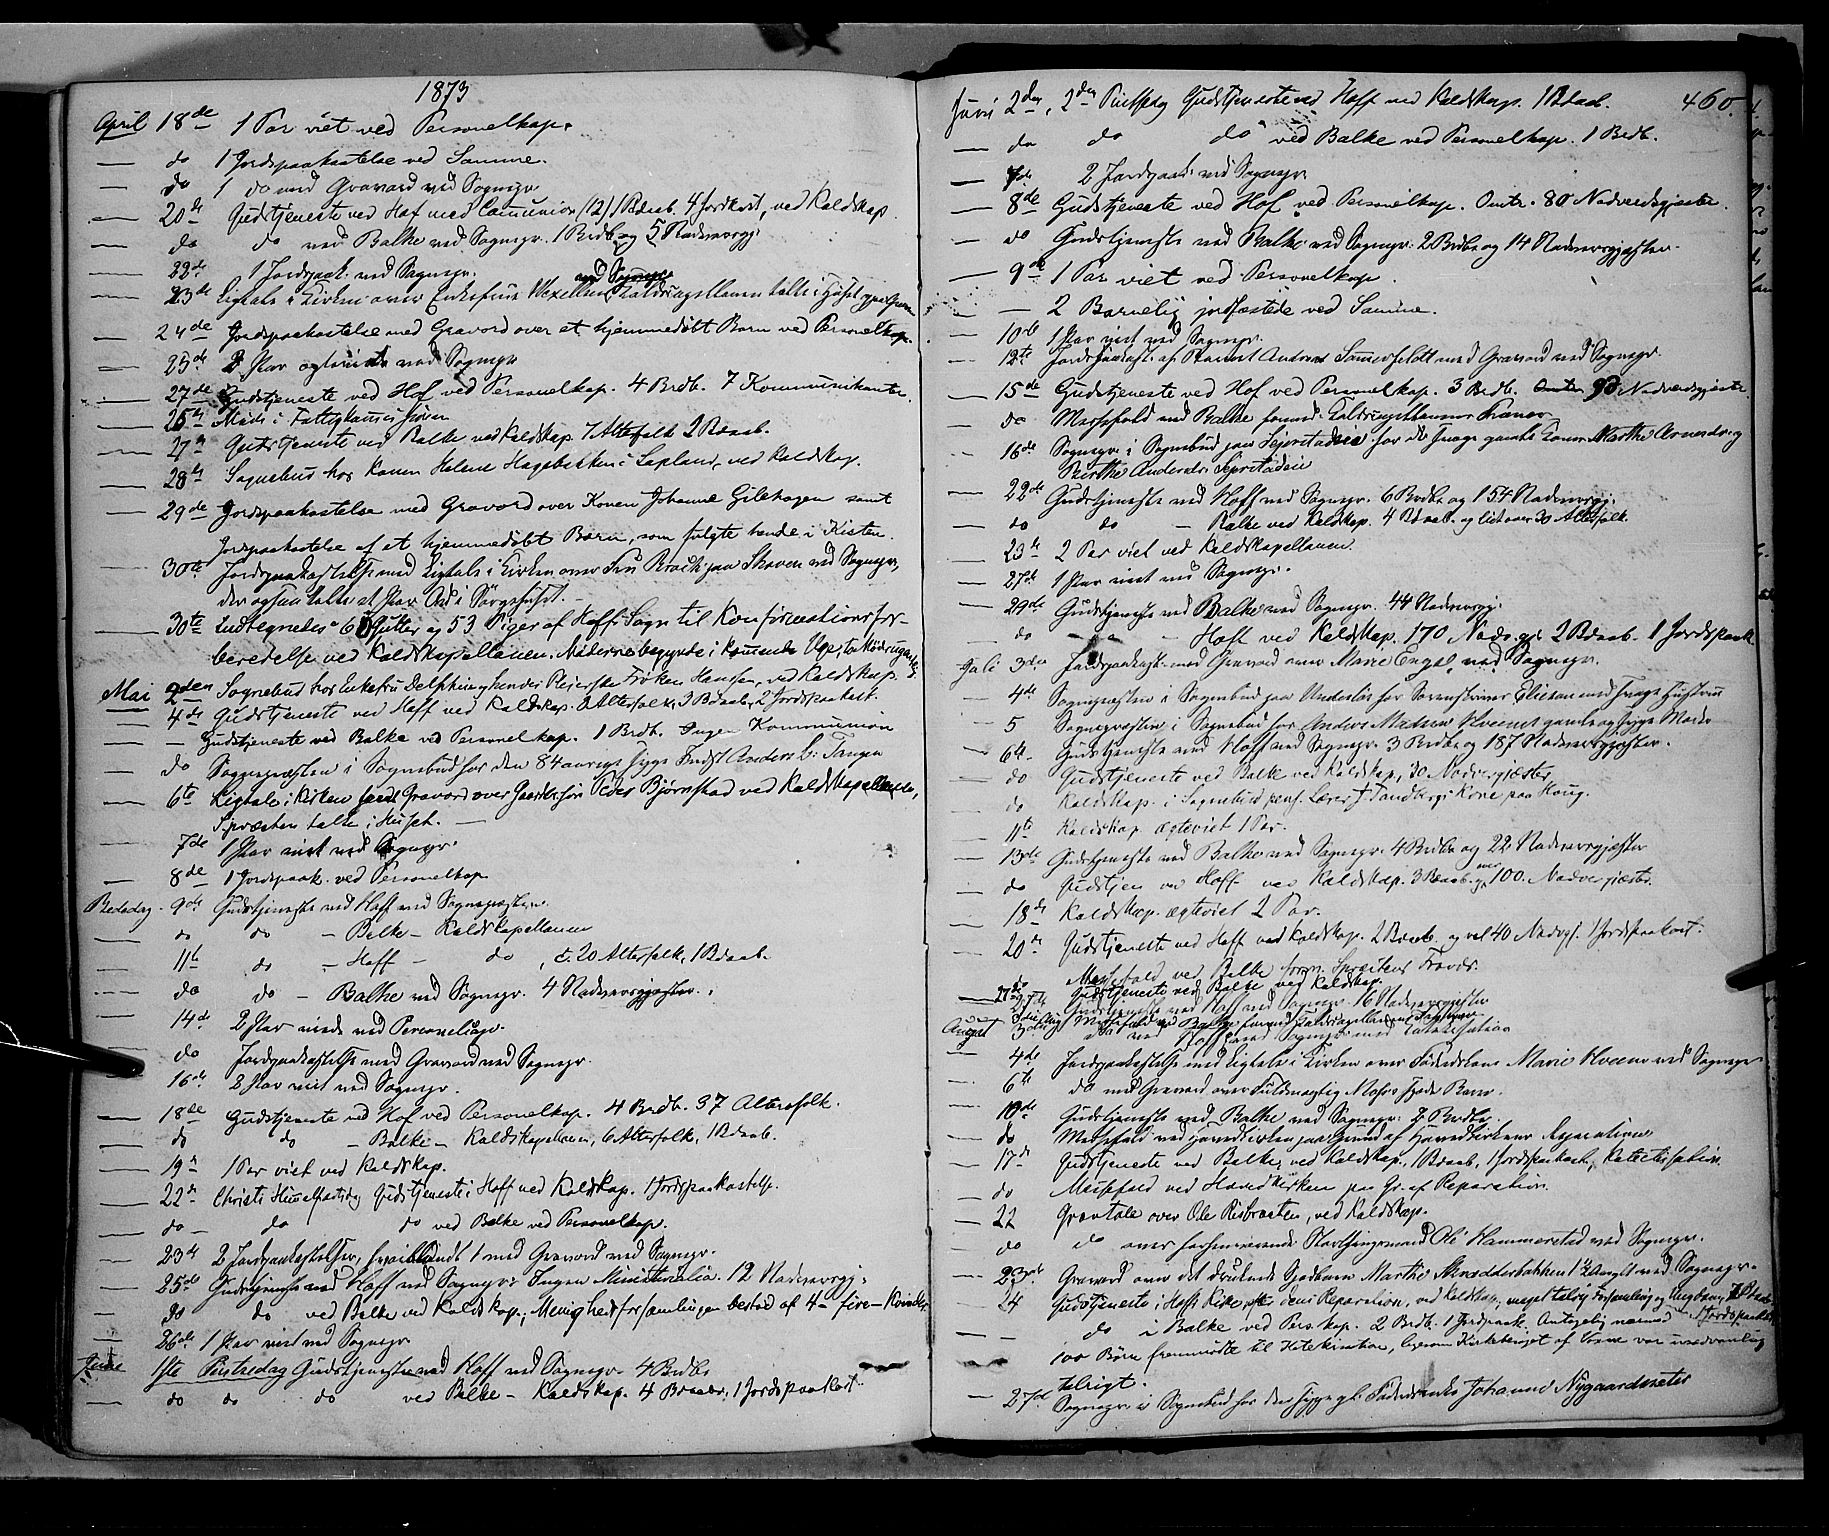 1873
April 18de 1 Par viet ved Personelkap.
— do 1 Jordspaakastelse ved Samme.
— do 1 do med Gravord ved Sognepr
— 20de Gudstjeneste ved Hof med Comunion (12) 1 Bdaab. 4 Jordkast, ved Kaldskap.
— do do ved Balke ved Sognepr. 1 Brdb. og 5 Nadverergj.
— 22de 1 Jordpaak. ved Sognepr.
— 23de Ligtale i Kirken over Enkefrue Wexelsen ved Sognepr Kaldscapellanen talte i Huset
— 24de Jordspaakastelse med Gravord over et hjemmedøbt Barn ved Personelkap.
— 25de 2 Par ved Sognepr
— 27de Gudstjeneste ved Hof ved Personelkap. 4 Brdb. 7 Kommunikanter.
— 25de Møde i Fattigkommissionen
— 27de Gudstjeneste ved Balke ved Kaldskap. 7 Alterfolk 2 Bdaab.
— 28de Sognebud hos Konen Helene Hagebakken i Lapland, ved Kaldskap.
— 29de Jordspaakastelse med Gravord over Konen Johanne Gilehagen samt
Jordspaakastelse af et hjemmedøbt Barn, som fulgte hende i Kisten.
— 30te Jordpaakastelse med Ligtale i Kirken over Fru Brock paa Skoven ved Sognepr,
der ogsaa talte et Par Ord i Sørgehuset.
— 30te Indtegnedes 60 Gutter og 53 Piger af Hoffs Sogn til Konfirmationsfor-
beredelse ved Kaldskapellanen. Møderne begynde i kommende Uge,
Mai 2den Sognebud hos Enkefru Delphin og hendes Pleierske Frøken Hansen, ved Kaldskap.
— 4de Gudstjeneste ved Hoff ved Kaldskap. Alterfolk, 3 Bdaab, 2 Jordspaakast.
— — Gudstjeneste ved Balke ved Personelkap. 1 Brdb. Ingen Kommunion
— do Sognepræsten i Sognebud for den 84 aarige syge Inds. Anders L. Tangen
— 6te Ligtale i Kirken samt Gravord over Gaardbr.søn Peder Bjørnstad ved Kaldskapellanen,
S.præsten talte i Huset. —
7de 1 Par viet ved Sognepr.
— 8de 1 Jordspaak. ved Personelkap
Bededag 9de Gudstjeneste ved Hoff ved Sognepræsten.
— do do — Balke — Kaldskapellanen
— 11te do — Hoff — do, c. 20 Alterfolk, 1 Bdaab.
— do do — Balke ved Sognepr. 4 Nadverergjester.
— 14de 2 Par viede ved Personelkap.
— do Jordpaakastelse med Gravord ved Sognepr.
— 16de 2 Par viet ved Sognepr.
— 18de Gudstjeneste ved Hof ved Personelkap. 4 Brdb. 37 Altersfolk.
— do do — Balke — Kaldskapellanen, 6 Alterfolk, 1 Bdaab.
— 19de 1 Par viet ved Kaldskap.
— 22de Christi Himmelfartsdag Gudstjeneste i Hoff ved Kaldskap. 1 Jordspaakastelse.
— do — do do ved Balke ved Personelkap.
— 23de 2 Jordpaakastelser, hvoriblandt 1 med Gravord ved Sognepr.
— 25de Gudstjeneste ved Hoff ved Sognepr. Ingen Ministerialia. 12 Nadverergj.
— do do ved Balke ved Kaldskap.; Menighedsforsamlingen bestod af 4 — fire — Kvinder
— 26de 1 Par viet ved Sognepr
Juni 1ste Pintsedag Gudstjeneste ved Hoff ved Sognepr. 4 Brdb.
— do do do ved Balke — Kaldskap. 4 Bdaab, 1 Jordspaakast.
460.
Juni 2den, 2den Pintsedag Gudstjeneste ved Hoff ved Kaldskap. 1 Bdaab.
— do do do ved Balke ved Personelkap. 1 Brdb.
— 7de 2 Jordpaak. ved Sognepr
— 8de Gudstjeneste ved Hof ved Personelkap. Omtr. 80 Nadverdsgjester.
— do Gudstjeneste ved Balke ved Sognepr. 2 Brdb. og 14 Nadverergjester.
— 9de 1 Par viet ved Personelkap.
— — 2 Barnelig jordfæstede ved Samme.
— 10de 1 Par viet ved Sognepr.
— 12te Jordpaakast. af Anders Sommerfeldt med Gravord ved Sognepr.
— 15de Gudstjeneste ved Hof ved Personelkap. 3 Brdb. Omtr. 90 Nadverdsgjester.
— do Messefald ved Balke formed. Kaldscapellanens Fravær
— 16de Sognepr. i Sognebud paa Sepretadeie for de svage gamle Koner Marthe Arnesdr. og
Berthe Andersdr. Sepretadeie
— 22de Gudstjeneste ved Hoff ved Sognepr. 6 Brdb. og 154 Nadverergj.
— do do — Balke ved Kaldskap. 4 Bdaab. og lidt over 30 Alterfolk.
— 23de 2 Par viet ved Kaldskapellanen.
— 27de 1 Par viet ved Sognepr.
— 29de Gudstjeneste ved Balke ved Sognepr. 44 Nadverergj.
— do — — Hoff ved Kaldskap. 170 Nadvgj. 2 Bdaab. 1 Jordspaak.
Juli 3die Jordpaakast. med Gravord over Marie Engel ved Sognepr.
— 4de Sognepræsten i Sognebud paa for Sorenskriver med svage Hustru
— 5 Sognepræsten i Sognebud for Anders Madsen Hveems gamle og syge Moder
— 6te Gudstjeneste ved Hoff ved Sognepr. 3 Brdb. og 187 Nadverergjester.
— do Gudstjeneste ved Balke ved Kaldskap, 30 Nadvergjæster,
— do Kaldskap. i Sognebud pens. Lærer J. Tandbergs Kone paa Haug.
— 11te Kaldskap. ægteviet 1 Par.
— 13de Gudstjeneste ved Balke ved Sognepr. 4 Brdb. og 22 Nadverergjester
— do Gudstjen ved Hoff ved Kaldskap. 3 Bdaab. og 100. Nadvergjæster.
— 18de Kaldskap. ægteviet 2 Par.
— 20de Gudstjeneste ved Hoff ved Kaldskap. 2 Bdaab. og vel 40 Nadvgj. 1 Jordspaakast.
— do Messefald ved Balke form. Spræstens Fravær.
— 27de Gudstjeneste ved Balke ved Kaldskap.
— 27de Gudstjeneste ved Hoff ved Sognepr. 16 Nadverergjester
August 3die Messefald ved Balke formed. Kaldscapellanens
3die do ved Hoff ved Sognepr. med Catekisation
— 4de Jordpaakastelse med Ligtale i Kirken over Føderdskone Marie Hveem ved Sognepr.
— 6te do med Gravord over Fuldmægtig Mohrs spæde Barn.
— 10de Gudstjeneste ved Balke ved Sognepr. 2 Brdb.
— do Messefald ved Hovedkirken paa Grund af Hovedkirkens Reparation
— 17de Gudstjeneste ved Balke, ved Kaldskap., 1 Bdaab, 1 Jordspaakast, Katechisation.
— do Messefald ved Hovedkirken paa Gr. af Reparation.
— 22 Gravtale over Ole Risbraaten, ved Kaldskap.
— do do over forhenværende Storthingsmand Ole Hammerstad ved Sognepr.
— 23de Gravord over det druknede Pigebarn Marthe Skrædderbakken 1½ Aar gl. ved Sognepr.
— 24 Gudstjeneste i Hoffs Kirke efter dens Reparation, ved Kaldskap, meget talrig Forsamling og Ungdom, 7 Bdaab
1 Jordspaakast.
— — do i Balke ved Pers.kap. 2 Brdb. 1 Jordpaak. Antagelig nærmed
100 Børn fremmødte til Katekisation, ligesom Kirkebesøget af Voxne var usedvanlig
talrigt.
— 27de Sognepr. i Sognebud for den syge gl. Føderdsenke Johanne Nygaardsæter